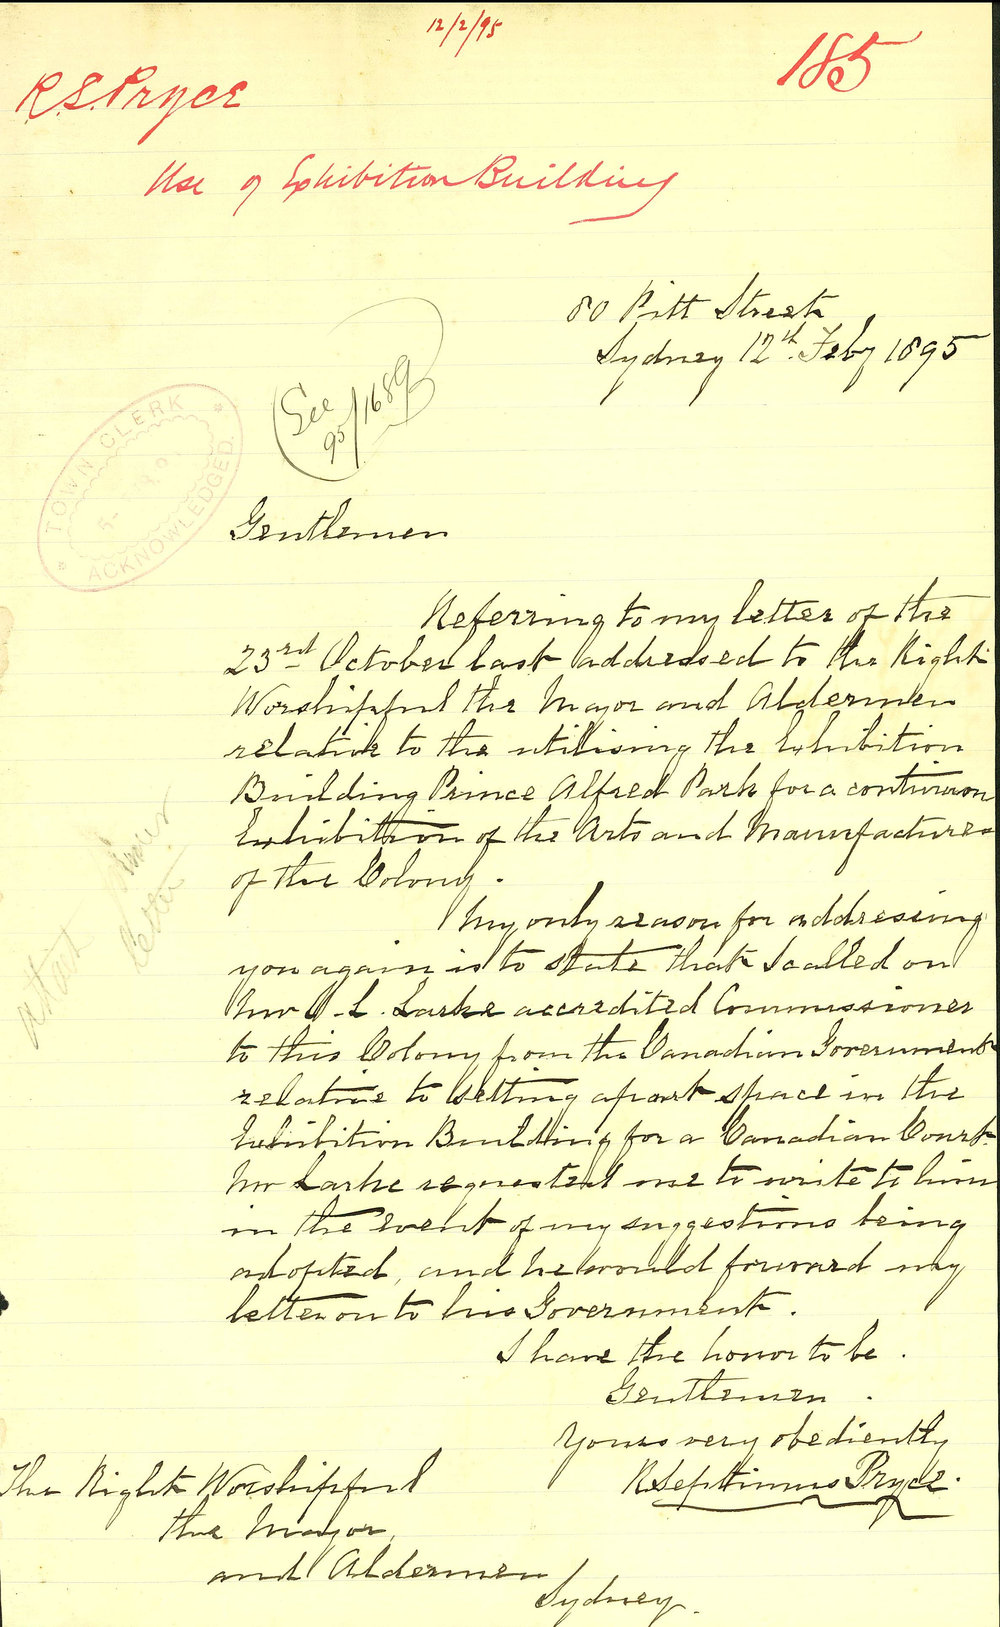 12/2/95
185
R.S. Pryce
Use of Exhibition Building
80 Pitt Street
Sydney 12th. Feby 1895
(See
95/1689)
TOWN CLERK
ACKNOWLEDGED
Gentlemen
Referring to my letter of the
23rd October last addressed to the Right
Worshipful the Mayor and Aldermen
relative to the utilising the Exhibition
Building Prince Alfred Park for a continuous
Exhibition of the Arts and Manufactures
of the Colony.
My only reason for addressing
you again is to state that I called on
Mr J. L. Larke accredited Commissioner
to this Colony from the Canadian Government
relative to setting apart space in the
Exhibition Building for a Canadian Court.
Mr Larke requested me to write to him
in the event of my suggestions being
adopted, and he would forward my
letter on to his Government.
attach
letter
I have the honor to be.
Gentlemen.
Yours very obediently
R Septimus Pryce.
The Right Worshipful
the Mayor,
and Aldermen
Sydney.